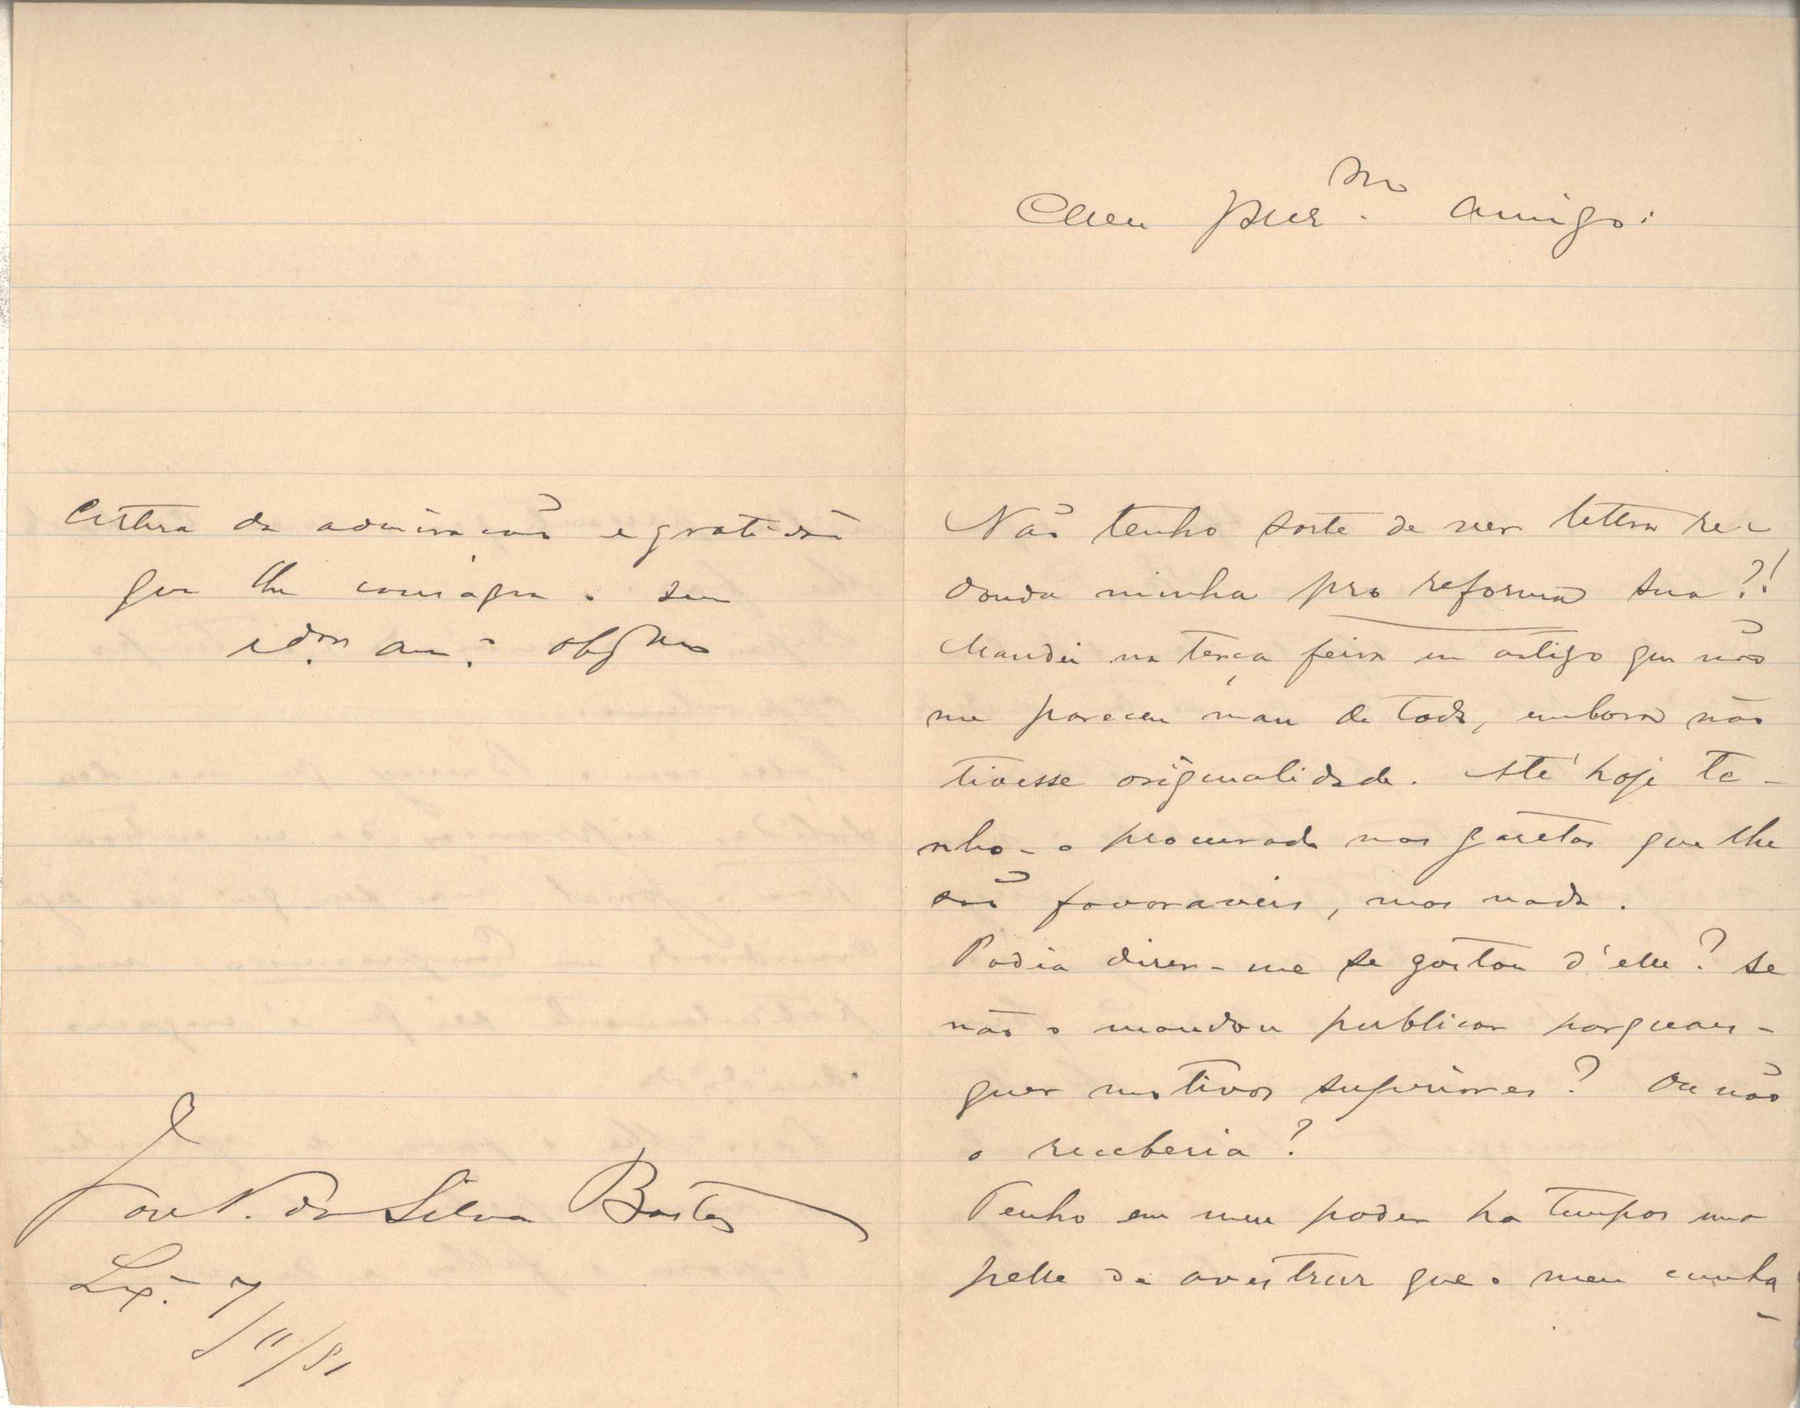 Meu pres.mo amigo:
Não tenho sorte de ver lettra re-
donda minha pro reforma sua?!
Mandei na terça feira um artigo que não
me pareceu mau de todo, embora não
tivesse originalidade. Até hoje te-
nho-o procurado nas gazetas que lhe
são favoraveis, mas nada.
Podia dizer-me se gostou d'elle? Se
não o mandou publicar porquaes-
quer motivos superiores? Ou não
o receberia?
Tenho em meu poder ha tempos uma
pelle de avestruz que o meu cunha-
certeza da admiração e gratidão
que lhe consagra o seu
am.o obgmo
José N. da Silva Bastos
Lx.a 7/11/81